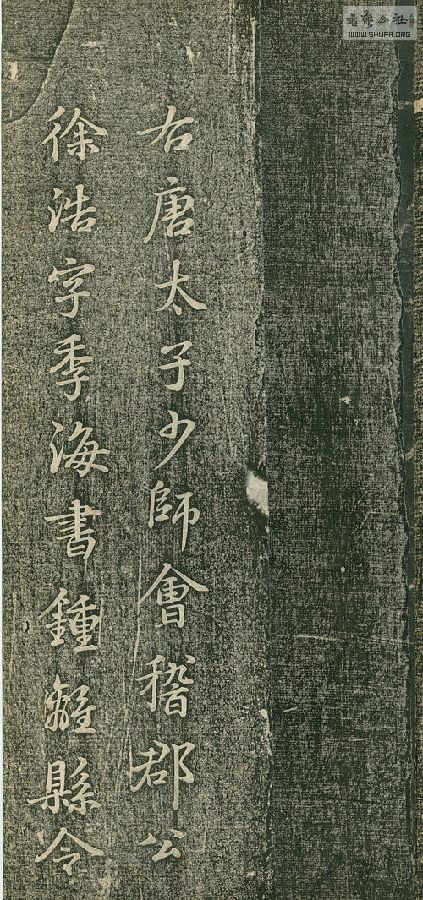 右唐太子少師會稽郡公
徐浩字季海書鍾離縣令
WWW.SHUFA.ORG